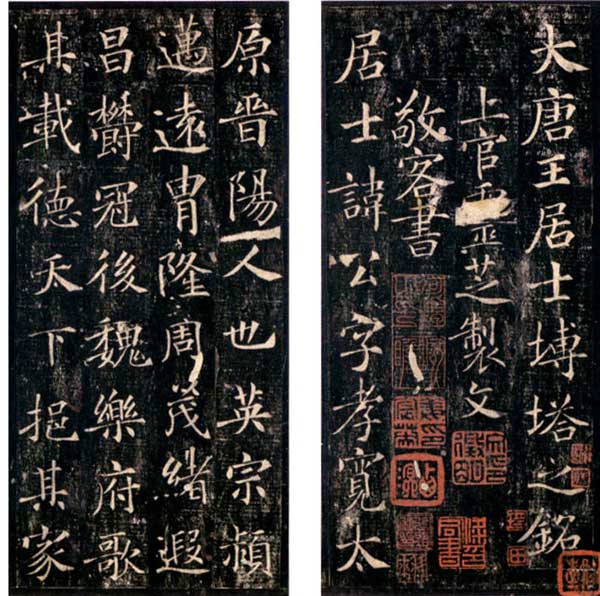 大唐王居士塼塔之銘
上官靈芝製文
敬客書
居士諱公字孝寬太
原晉陽人也英宗潁
邁遠胄隆周茂緒遐
昌欝冠後魏樂府歌
其載德天下挹其家